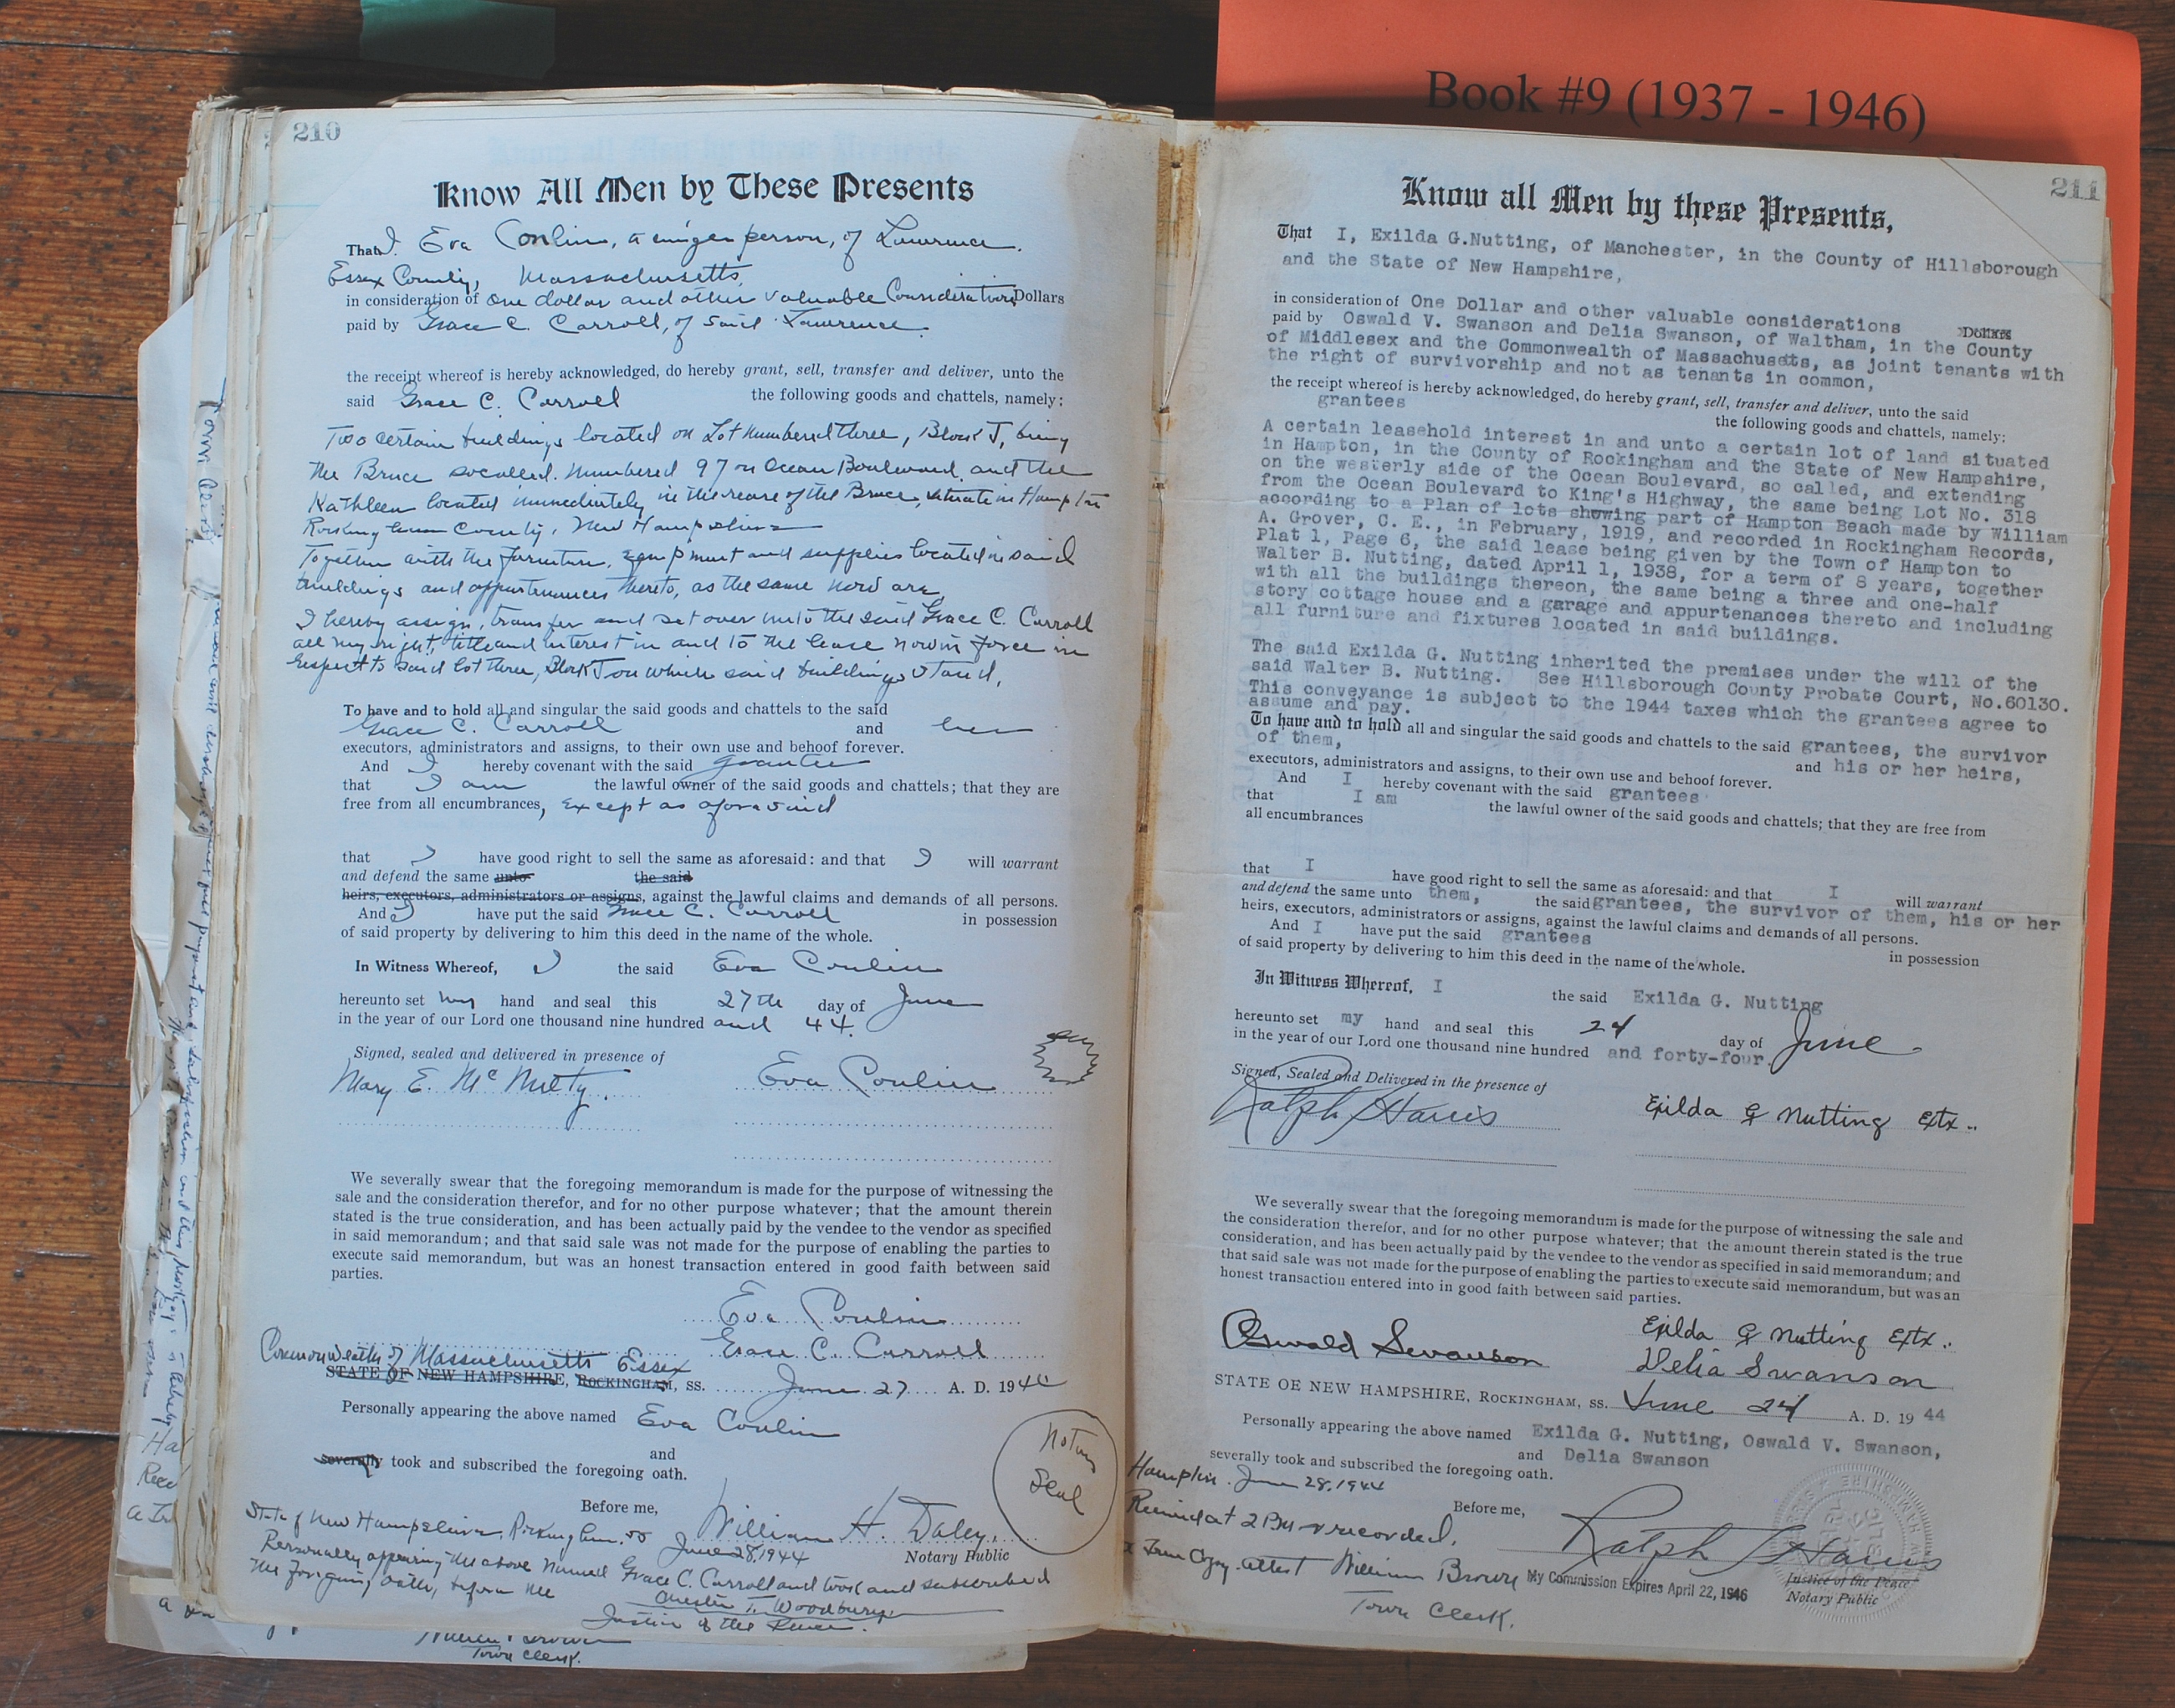 Book #9 (1937 - 1946)
210
Know All Men by These Presents
That I, Eva Conlin, a single person, of Lawrence,
Essex County, Massachusetts,
in consideration of One dollar and other valuable Considerations Dollars
paid by Grace C. Carroll, of said Lawrence.
the receipt whereof is hereby acknowledged, do hereby grant, sell, transfer and deliver, unto the
said Grace C. Carroll the following goods and chattels, namely:
Two certain buildings located on Lot numbered three, Block J, being
the Bruce so called. numbered 97 on Ocean Boulevard, and the
Kathleen located immediately in the rear of the Bruce, situate in Hampton
Rockingham County, New Hampshire
Together with the furniture, equipment and supplies located in said
buildings and appurtenances thereto, as the same now are,
I hereby assign, transfer and set over unto the said Grace C. Carroll
all my right, title and interest in and to the lease now in force in
respect to said lot three, Block J on which said buildings stand.
To have and to hold all and singular the said goods and chattels to the said
Grace C. Carroll and her
executors, administrators and assigns, to their own use and behoof forever.
And I hereby covenant with the said grantee
that I am the lawful owner of the said goods and chattels; that they are
free from all encumbrances, except as aforesaid
that I have good right to sell the same as aforesaid: and that I will warrant
and defend the same unto the said
heirs, executors, administrators or assigns, against the lawful claims and demands of all persons.
And I have put the said Grace C. Carroll in possession
of said property by delivering to him this deed in the name of the whole.
In Witness Whereof, I the said Eva Conlin
hereunto set my hand and seal this 27th day of June
in the year of our Lord one thousand nine hundred and 44.
Signed, sealed and delivered in presence of
Mary E. McNulty. Eva Conlin
We severally swear that the foregoing memorandum is made for the purpose of witnessing the
sale and the consideration therefor, and for no other purpose whatever; that the amount therein
stated is the true consideration, and has been actually paid by the vendee to the vendor as specified
in said memorandum; and that said sale was not made for the purpose of enabling the parties to
execute said memorandum, but was an honest transaction entered in good faith between said
parties.
Eva Conlin
Grace C. Carroll
Commonwealth of Massachusetts Essex
STATE OF NEW HAMPSHIRE, ROCKINGHAM, ss. June 27 A. D. 1944
Personally appearing the above named Eva Conlin
and
severally took and subscribed the foregoing oath.
Notary
Seal
Before me, William H. Daley,
Notary Public
State of New Hampshire, Rockingham. ss June 28, 1944
Personally appearing the above named Grace C. Carroll and took and subscribed
the foregoing oath, before me
Chester T. Woodbury
Justice of the Peace.
Town Clerk.
211
Know all Men by these Presents,
That I, Exilda G.Nutting, of Manchester, in the County of Hillsborough
and the State of New Hampshire,
in consideration of One Dollar and other valuable considerations Dollars
paid by Oswald V. Swanson and Delia Swanson, of Waltham, in the County
of Middlesex and the Commonwealth of Massachusetts, as joint tenants with
the right of survivorship and not as tenants in common,
the receipt whereof is hereby acknowledged, do hereby grant, sell, transfer and deliver, unto the said
grantees the following goods and chattels, namely:
A certain leasehold interest in and unto a certain lot of land situated
in Hampton, in the County of Rockingham and the State of New Hampshire,
on the westerly side of the Ocean Boulevard, so called, and extending
from the Ocean Boulevard to King's Highway, the same being Lot No. 318
according to a Plan of lots showing part of Hampton Beach made by William
A. Grover, C. E., in February, 1919, and recorded in Rockingham Records,
Plat 1, Page 6, the said lease being given by the Town of Hampton to
Walter B. Nutting, dated April 1, 1938, for a term of 8 years, together
with all the buildings thereon, the same being a three and one-half
story cottage house and a garage and appurtenances thereto and including
all furniture and fixtures located in said buildings.
The said Exilda G. Nutting inherited the premises under the will of the
said Walter B. Nutting. See Hillsborough County Probate Court, No.60130.
This conveyance is subject to the 1944 taxes which the grantees agree to
assume and pay.
To have and to hold all and singular the said goods and chattels to the said grantees, the survivor
of them, and his or her heirs,
executors, administrators and assigns, to their own use and behoof forever.
And I hereby covenant with the said grantees
that I am the lawful owner of the said goods and chattels; that they are free from
all encumbrances
that I have good right to sell the same as aforesaid: and that I will warrant
and defend the same unto them, the said grantees, the survivor of them, his or her
heirs, executors, administrators or assigns, against the lawful claims and demands of all persons.
And I have put the said grantees in possession
of said property by delivering to him this deed in the name of the whole.
In Witness Whereof, I the said Exilda G. Nutting
hereunto set my hand and seal this 24 day of June
in the year of our Lord one thousand nine hundred and forty-four.
Signed, Sealed and Delivered in the presence of
Ralph Harris Exilda G Nutting Extx..
We severally swear that the foregoing memorandum is made for the purpose of witnessing the sale and
the consideration therefor, and for no other purpose whatever; that the amount therein stated is the true
consideration, and has been actually paid by the vendee to the vendor as specified in said memorandum; and
that said sale was not made for the purpose of enabling the parties to execute said memorandum, but was an
honest transaction entered into in good faith between said parties.
Exilda G Nutting Extx..
Oswald Swanson Delia Swanson
STATE OE NEW HAMPSHIRE, ROCKINGHAM, ss. June 24 A. D. 1944
Personally appearing the above named Exilda G. Nutting, Oswald V. Swanson,
and Delia Swanson
severally took and subscribed the foregoing oath.
Hampton. June 28, 1944
Received at 2 PM & recorded.
Before me, Ralph Harris
a True Copy. attest William Brown
Town Clerk.
My Commission Expires April 22, 1946
Justice of the Peace
Notary Public